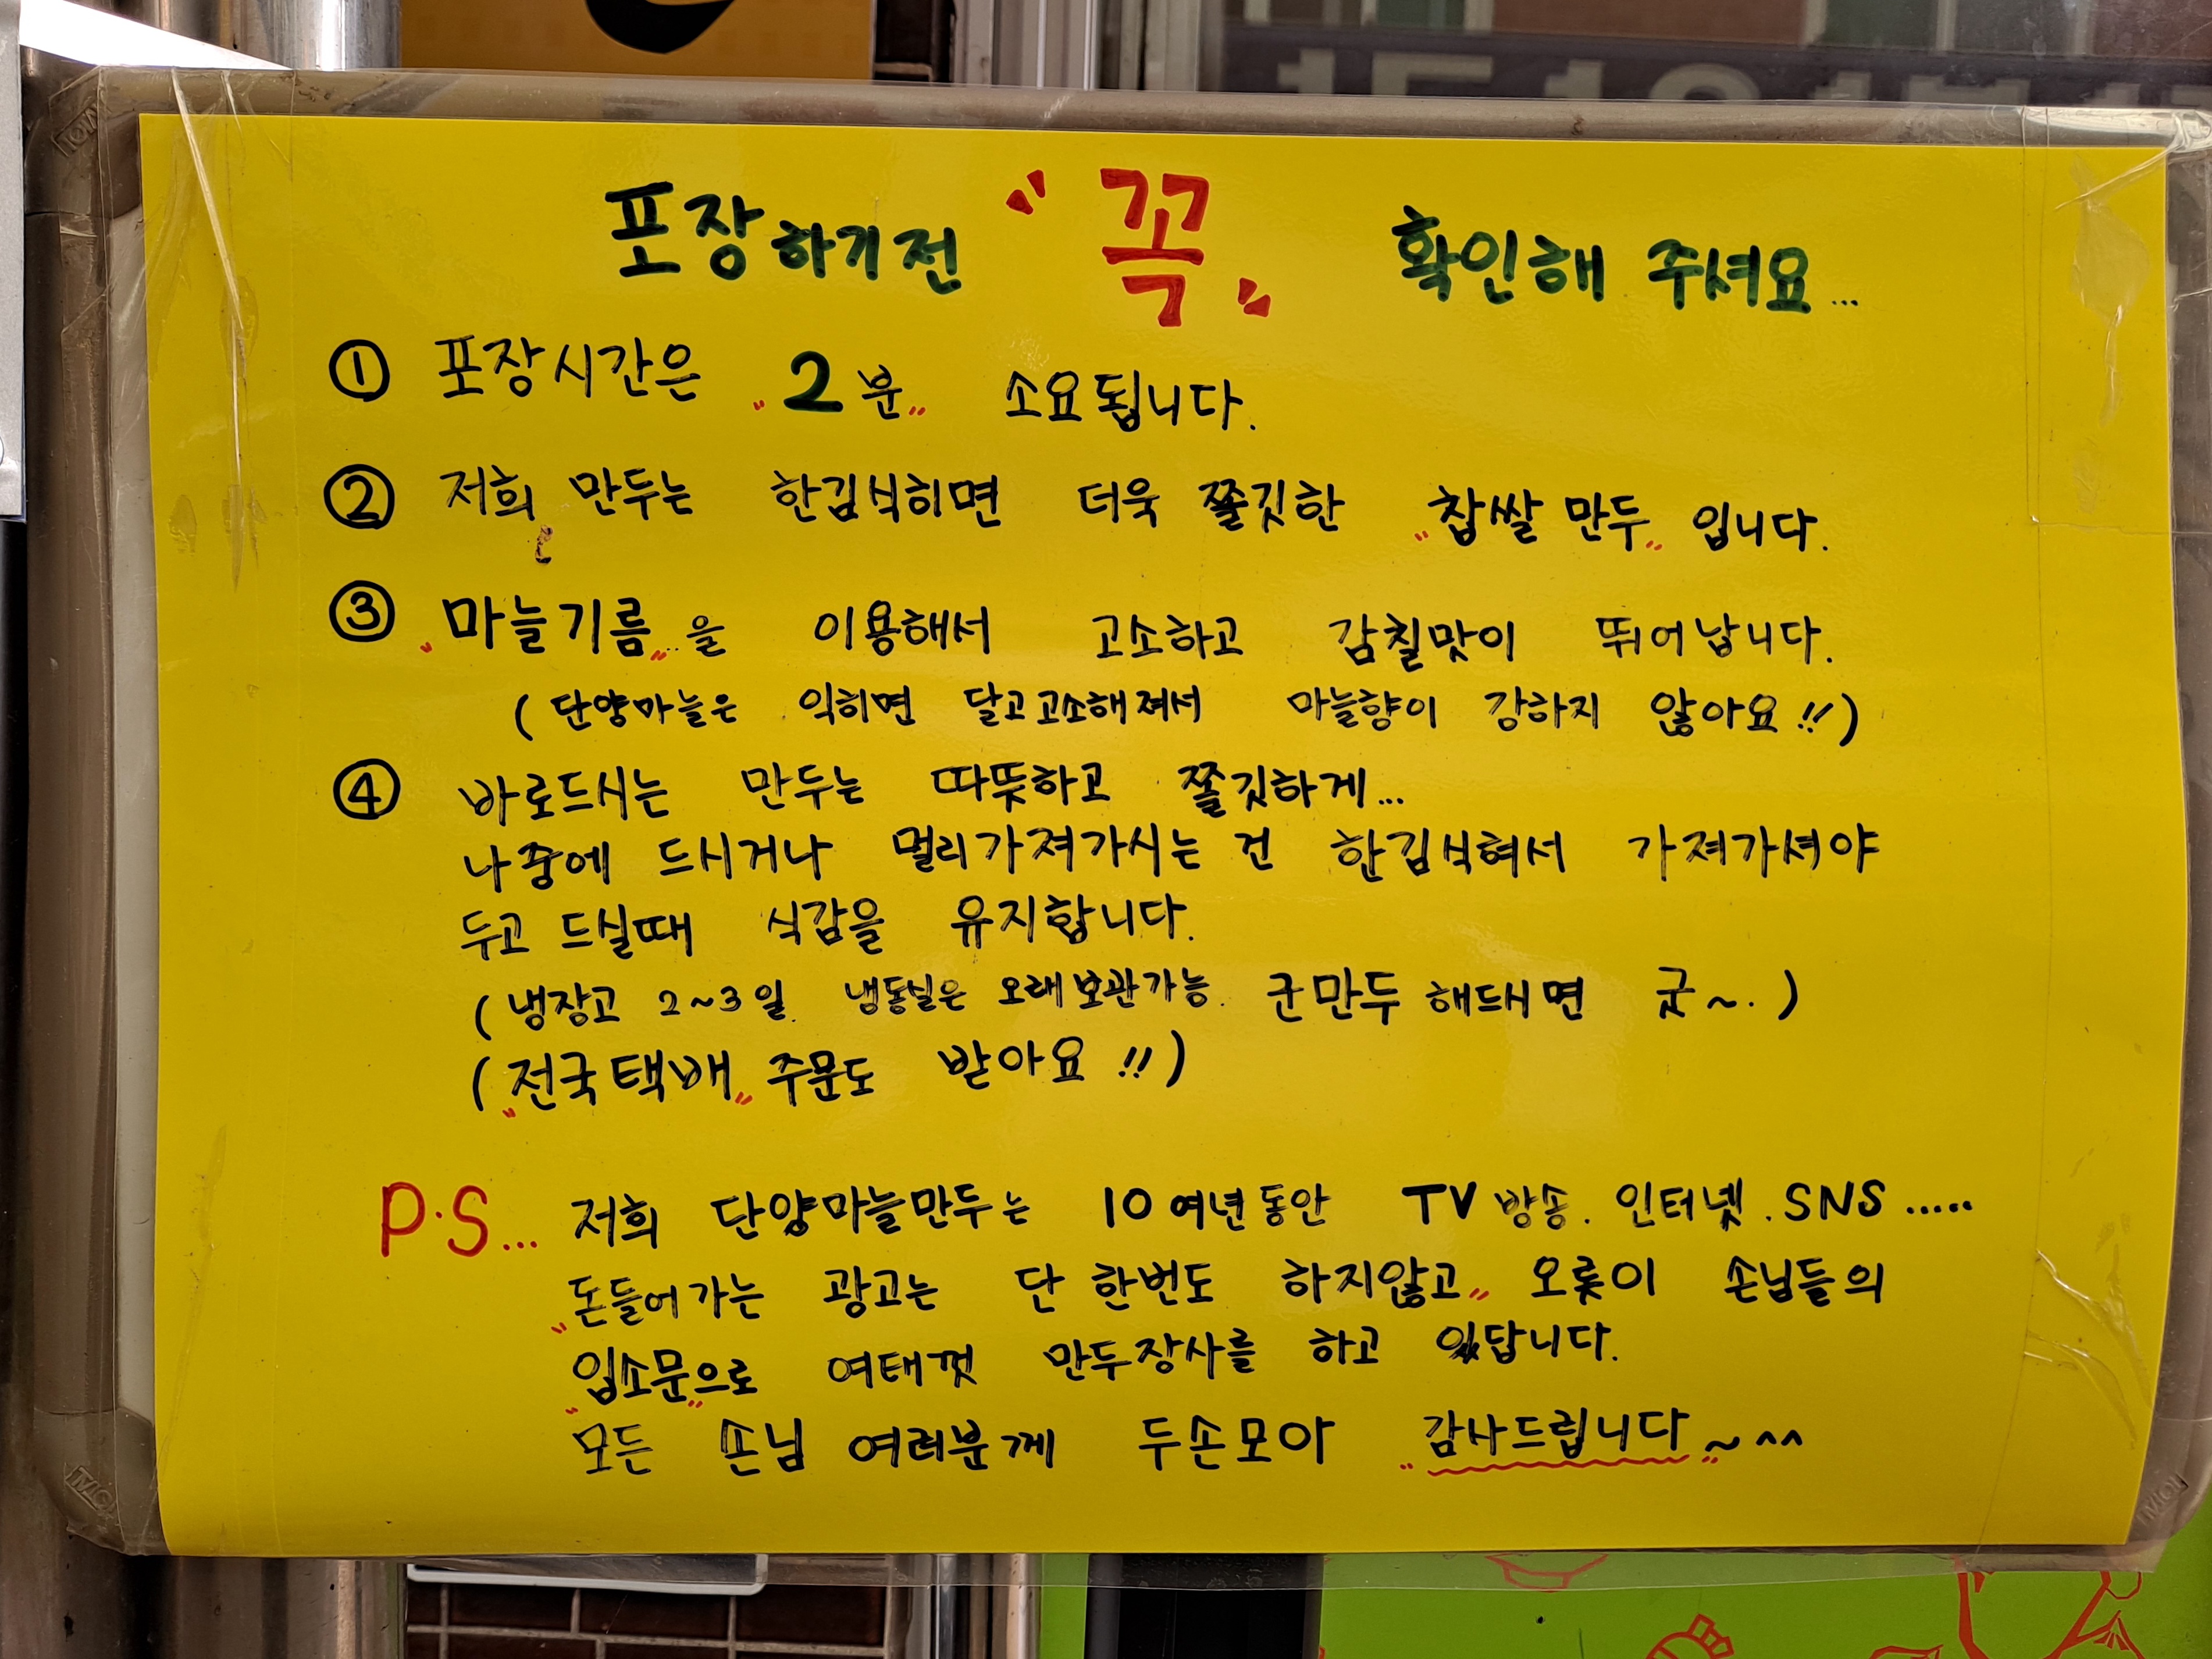 포장하기전 "꼭" 확인해 주셔요...
① 포장시간은 "2분" 소요됩니다.
② 저희 만두는 한김식히면 더욱 쫄깃한 "찹쌀만두" 입니다.
③ "마늘기름"을 이용해서 고소하고 감칠맛이 뛰어납니다.
(단양마늘은 익히면 달고고소해져서 마늘향이 강하지 않아요!!)
④ 바로드시는 만두는 따뜻하고 쫄깃하게...
나중에 드시거나 멀리가져가시는건 한김식혀서 가져가셔야
두고 드실때 식감을 유지합니다.
(냉장고 2~3일. 냉동실은 오래보관가능. 군만두해드시면 굿~.)
("전국택배" 주문도 받아요!!)
P.S... 저희 단양마늘만두는 10여년동안 TV방송. 인터넷. SNS.....
"돈들어가는 광고는 단 한번도 하지않고" 오롯이 손님들의
"입소문"으로 여태껏 만두장사를 하고 있답니다.
모든 손님 여러분께 두손모아 "감사드립니다~"^^